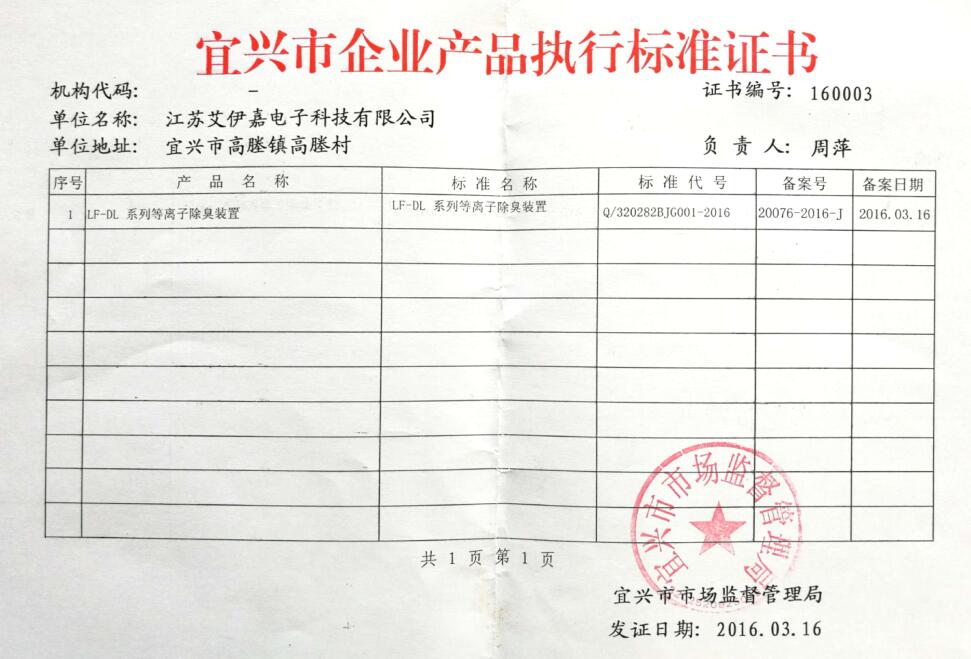 宜兴市企业产品执行标准证书
机构代码： - 证书编号： 160003
单位名称： 江苏艾伊嘉电子科技有限公司
单位地址： 宜兴市高塍镇高塍村 负 责 人： 周萍
序号 产 品 名 称 标 准 名 称 标 准 代 号 备案号 备案日期
1 LF-DL 系列等离子除臭装置 LF-DL 系列等离子除臭装置 Q/320282BJG001-2016 20076-2016-J 2016.03.16
宜兴市市场监督管理局
共 1 页 第 1 页
宜兴市市场监督管理局
发证日期： 2016.03.16